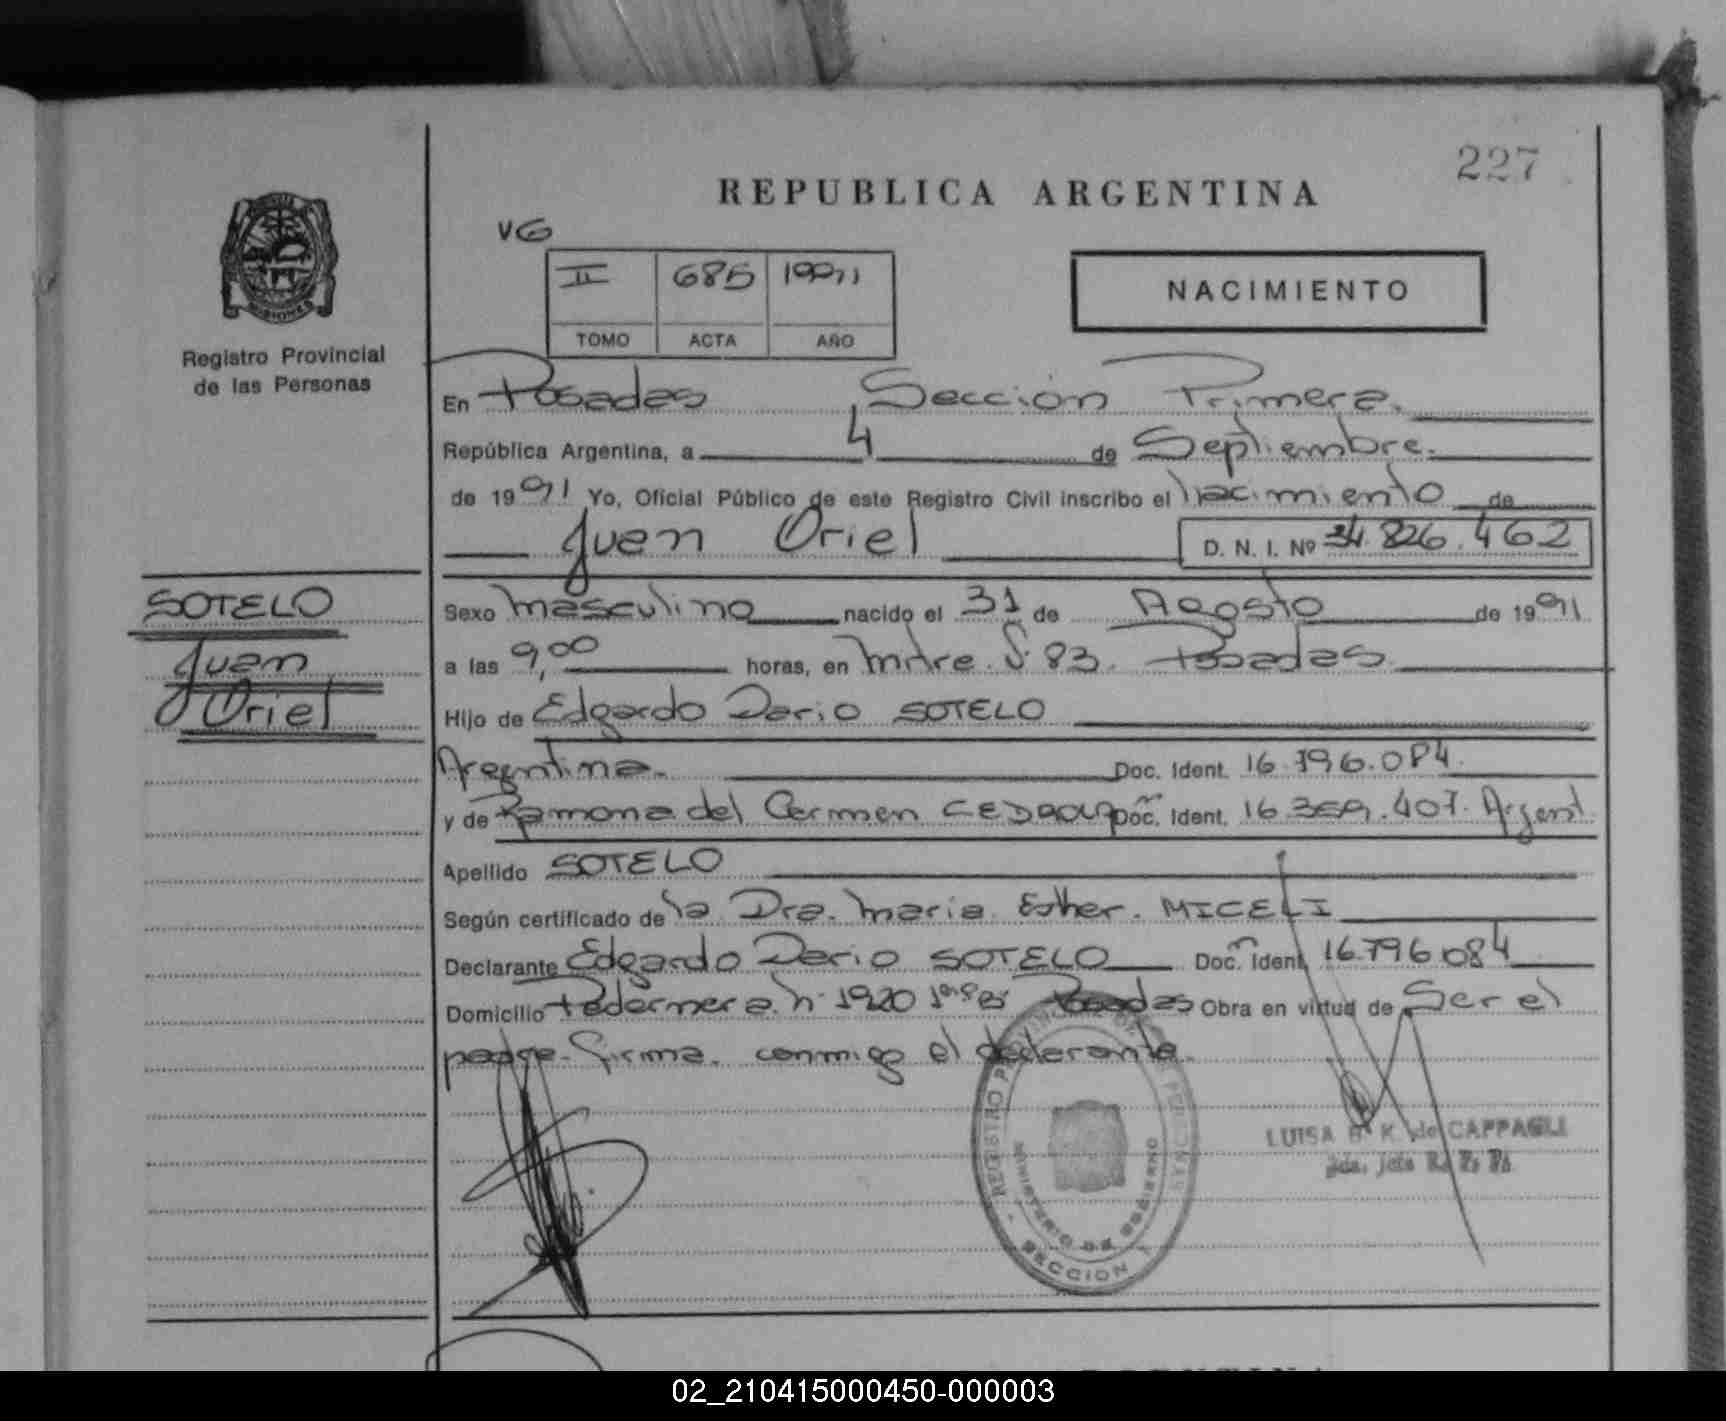 227
REPUBLICA ARGENTINA
VG
II 685 1991
TOMO ACTA AÑO
NACIMIENTO
MISIONES
Registro Provincial
de las Personas
En Posadas Sección Primera.
República Argentina, a 4 de Septiembre.
de 1991 Yo, Oficial Público de este Registro Civil inscribo el nacimiento de
Juan Oriel D. N. I. Nº 34.826.462
SOTELO
Juan
Oriel
Sexo masculino nacido el 31 de Agosto de 1991
a las 9,00 horas, en Mtre. S. 83. Posadas.
Hijo de Edgardo Dario SOTELO
Argentina. Doc. Ident. 16.796.084.
y de Ramona del Carmen Doc. Ident. 16.369.407. Argent
Apellido SOTELO
Según certificado de la Dra. Maria Esther. MICELI
Declarante Edgardo Dario SOTELO Doc. Ident. 16.796.084
Domicilio Pedernera. n. 1920 Posadas Obra en virtud de Ser el
padre. firma. conmigo el declarante.
REGISTRO PROVINCIAL DE LAS PERSONAS
MINISTERIO DE GOBIERNO
SECCION
LUISA B. K. de CAPPAGLI
02_210415000450-000003